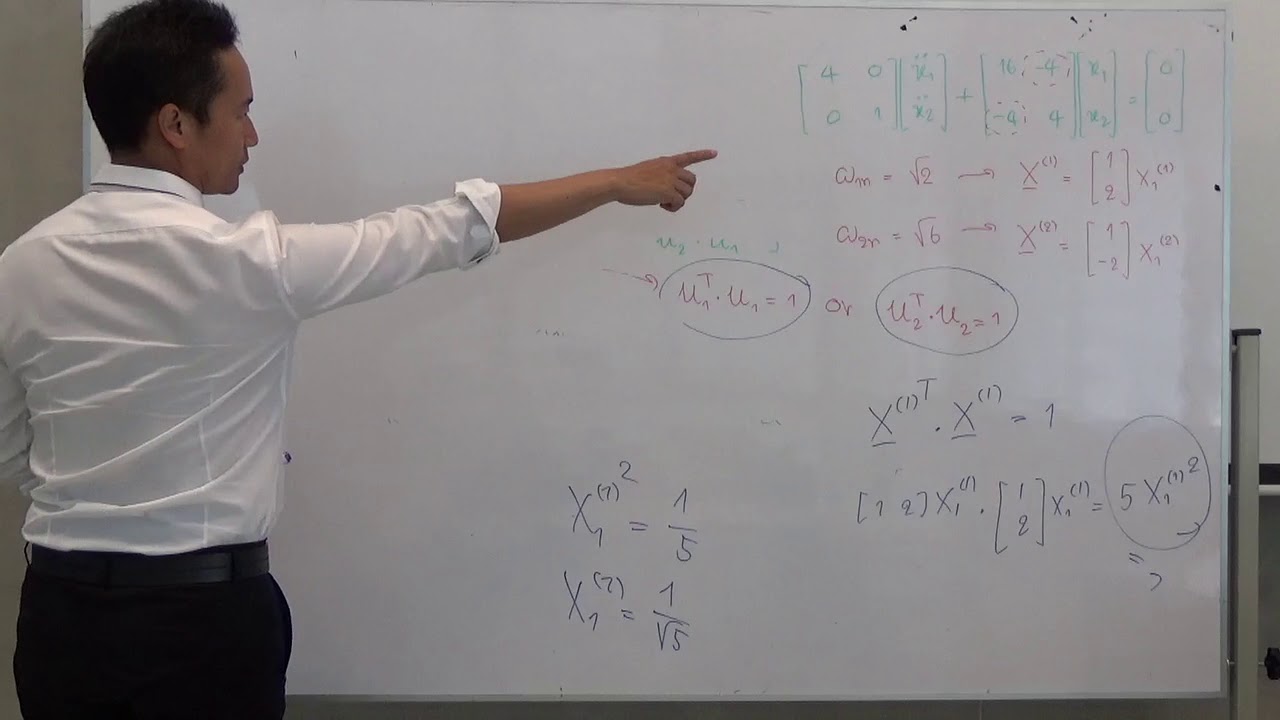 [4 0; 0 1][ẍ₁; ẍ₂] + [16 -4; -4 4][x₁; x₂] = [0; 0]
ω₁ₙ = √2 → X⁽¹⁾ = [1; 2] X₁⁽¹⁾
ω₂ₙ = √6 → X⁽²⁾ = [1; -2] X₁⁽²⁾
u₂ · u₁
→ u₁ᵀ · u₁ = 1 or u₂ᵀ · u₂ = 1
X⁽¹⁾ᵀ · X⁽¹⁾ = 1
[1 2] X₁⁽¹⁾ · [1; 2] X₁⁽¹⁾ = 5 X₁⁽¹⁾²
=
X₁⁽¹⁾² = 1/5
X₁⁽¹⁾ = 1/√5